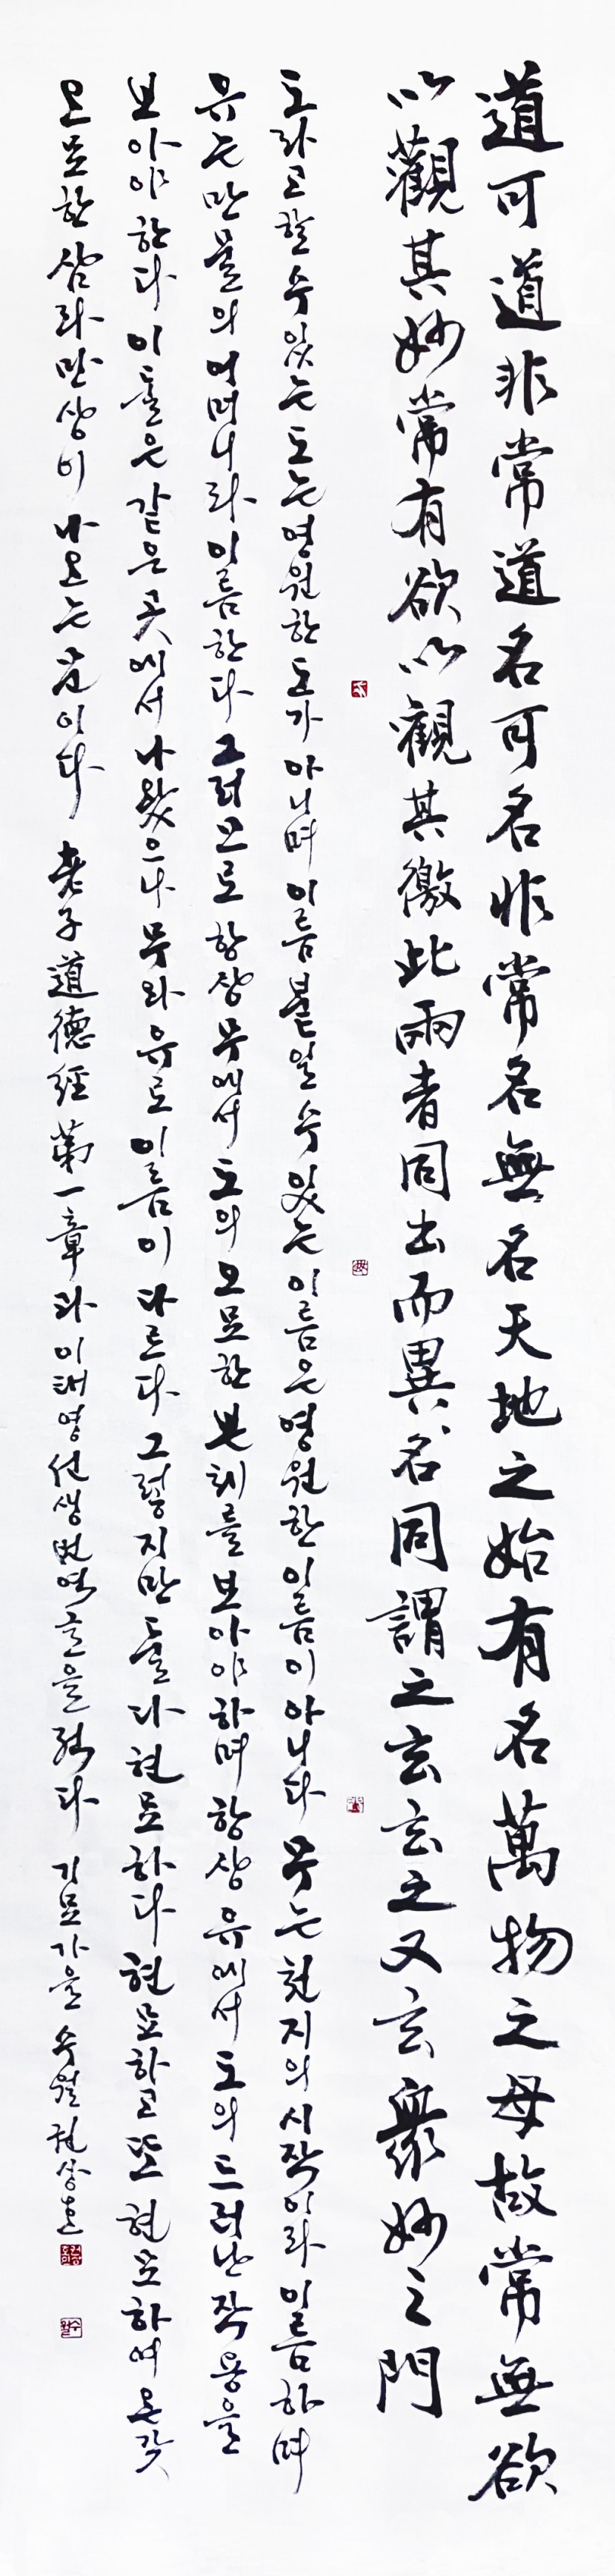 道可道非常道名可名非常名無名天地之始有名萬物之母故常無欲
以觀其妙常有欲以觀其徼此兩者同出而異名同謂之玄玄之又玄衆妙之門
도라고 할 수 있는 도는 영원한 도가 아니며 이름 붙일 수 있는 이름은 영원한 이름이 아니다 무는 천지의 시작이라 이름하며
유는 만물의 어머니라 이름한다 그러므로 항상 무에서 도의 오묘한 본체를 보아야 하며 항상 유에서 도의 드러난 작용을
보아야 한다 이 둘은 같은 곳에서 나왔으나 무와 유로 이름이 다르다 그렇지만 둘 다 현묘하다 현묘하고 또 현묘하여 온갖
오묘한 삼라만상이 나오는 문이다 老子道德經 第一章과 이태영 선생 번역글을 적다 기묘가을 수월